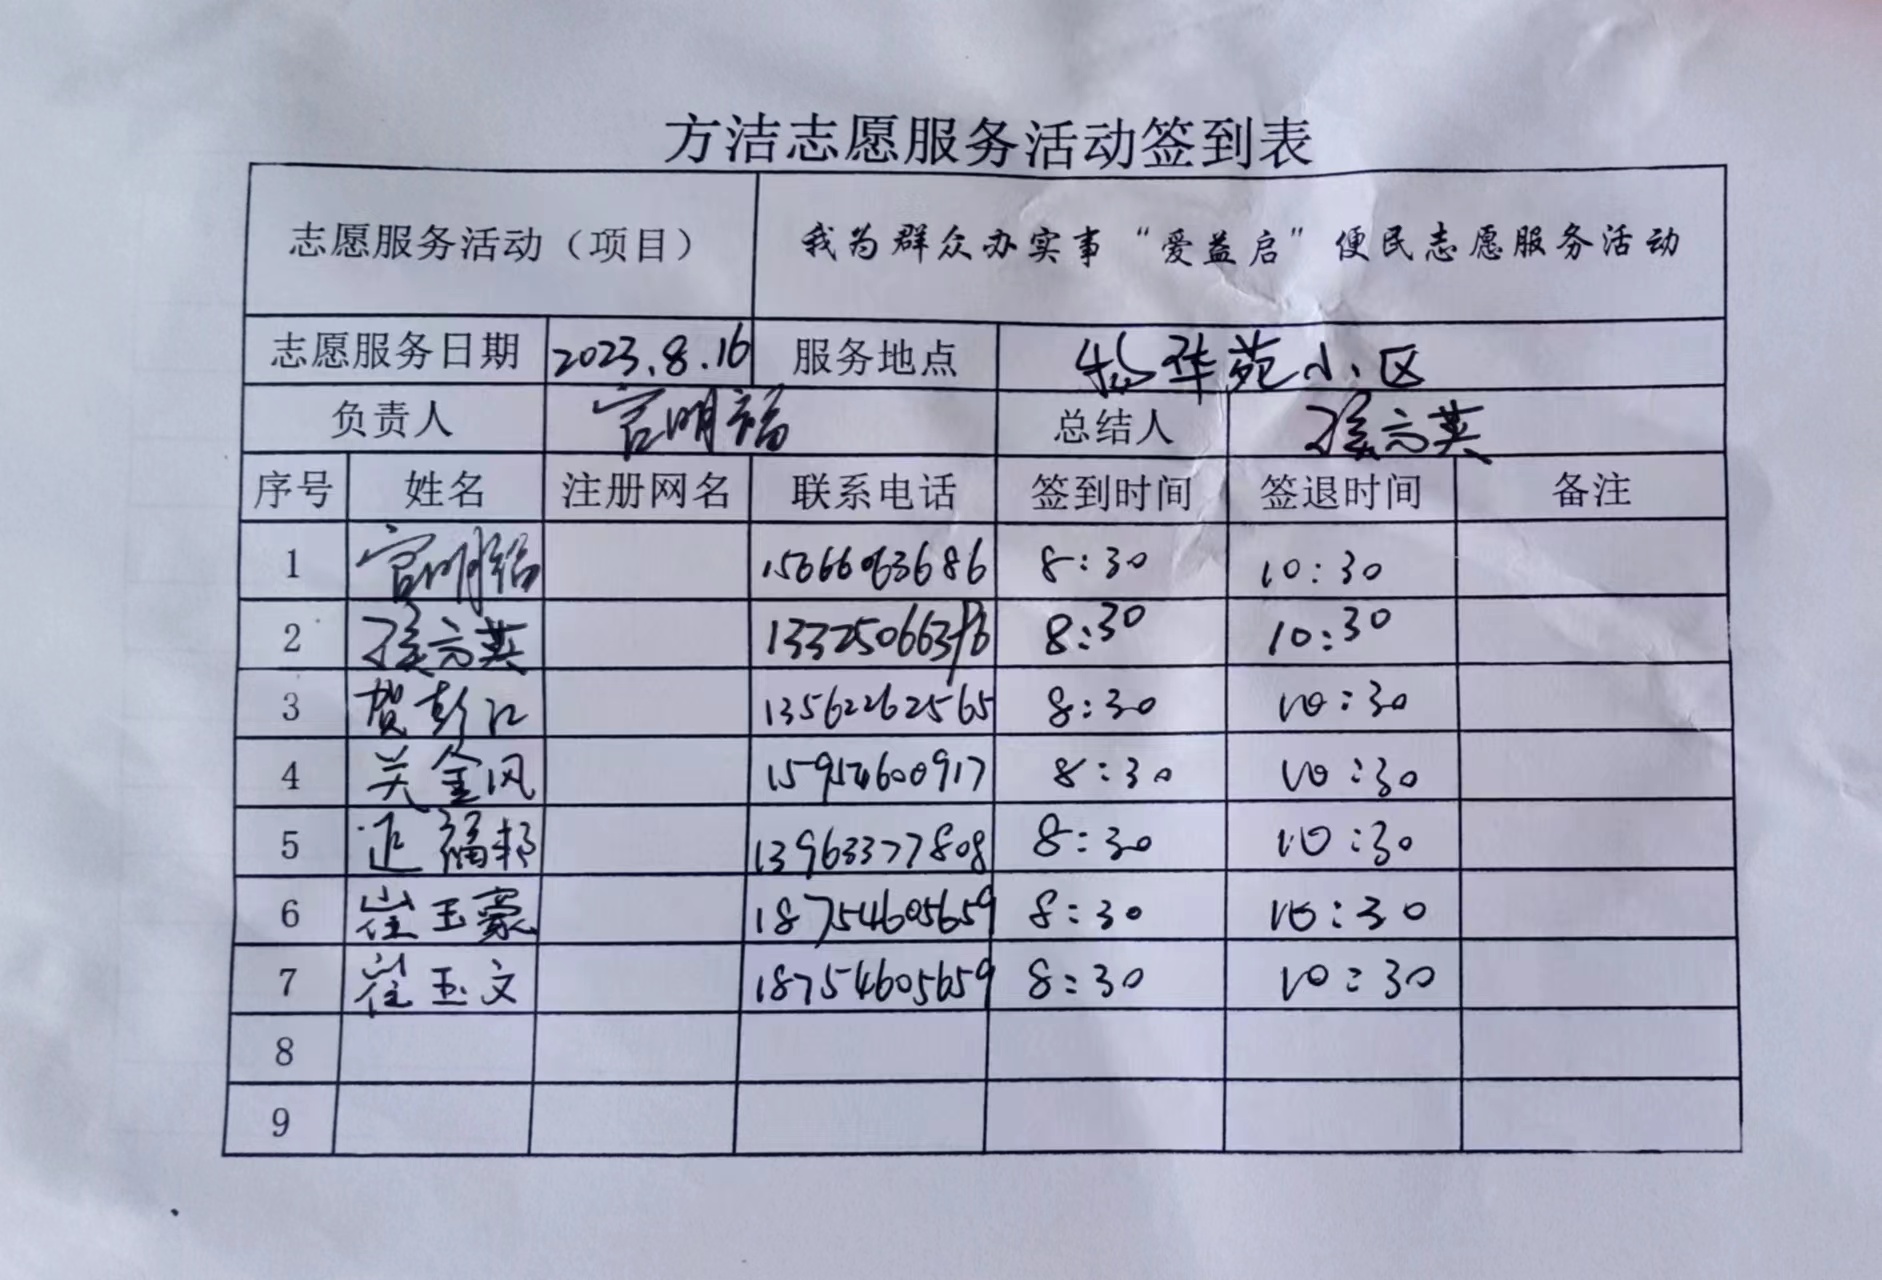 方洁志愿服务活动签到表
志愿服务活动（项目） 我为群众办实事“爱益启”便民志愿服务活动
志愿服务日期 2023.8.16 服务地点 华苑小区
负责人 官明福 总结人 孫方英
序号 姓名 注册网名 联系电话 签到时间 签退时间 备注
1 官明福 15666063686 8:30 10:30
2 孫方英 8:30 10:30
3 贺彭江 13562262565 8:30 10:30
4 关金凤 15954600917 8:30 10:30
5 福邦 13963377808 8:30 10:30
6 崔玉豪 18754605659 8:30 10:30
7 崔玉文 18754605659 8:30 10:30
8
9